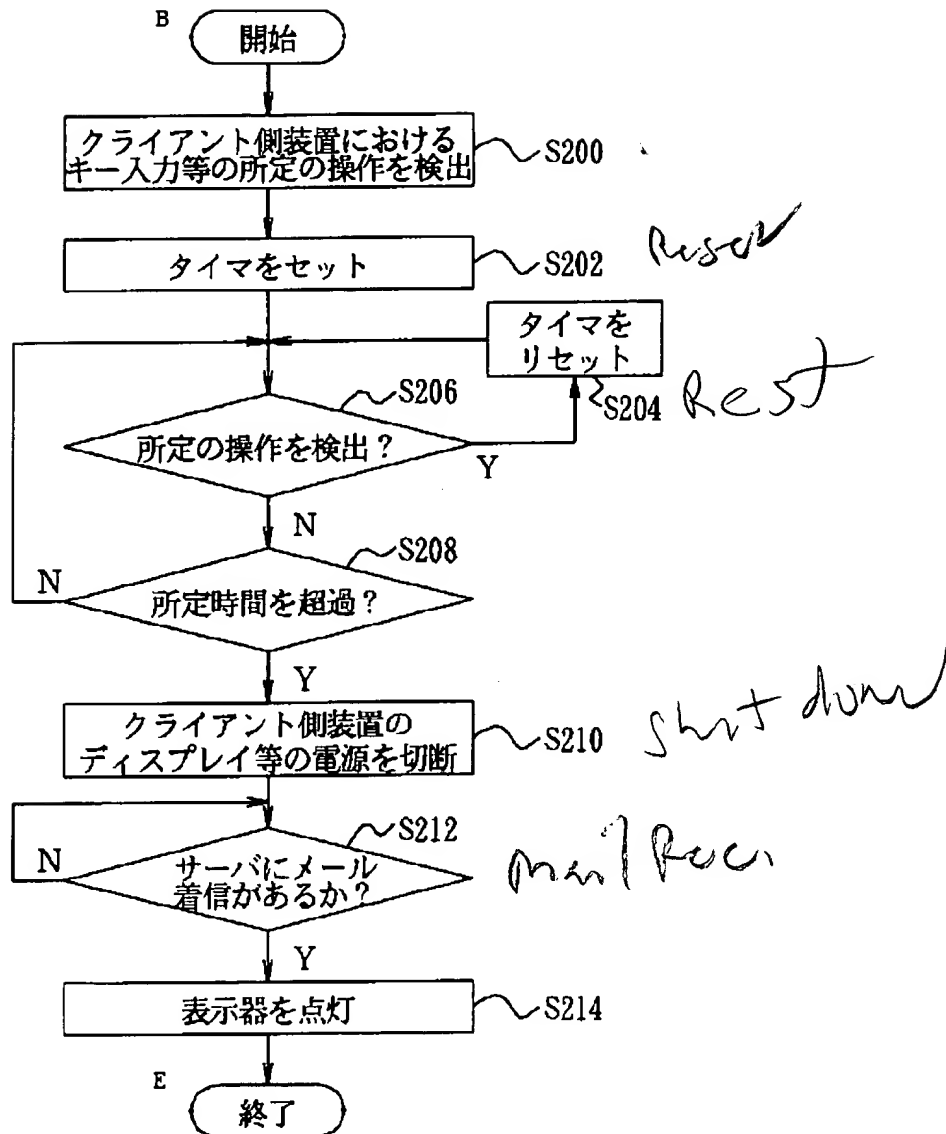 B
開始
クライアント側装置における
キー入力等の所定の操作を検出
S200
タイマをセット
S202
タイマを
リセット
S204
Rest
S206
所定の操作を検出?
Y
N
S208
所定時間を超過?
N
Y
クライアント側装置の
ディスプレイ等の電源を切断
S210
Shut down
S212
サーバにメール
着信があるか?
N
Y
mail
表示器を点灯
S214
E
終了